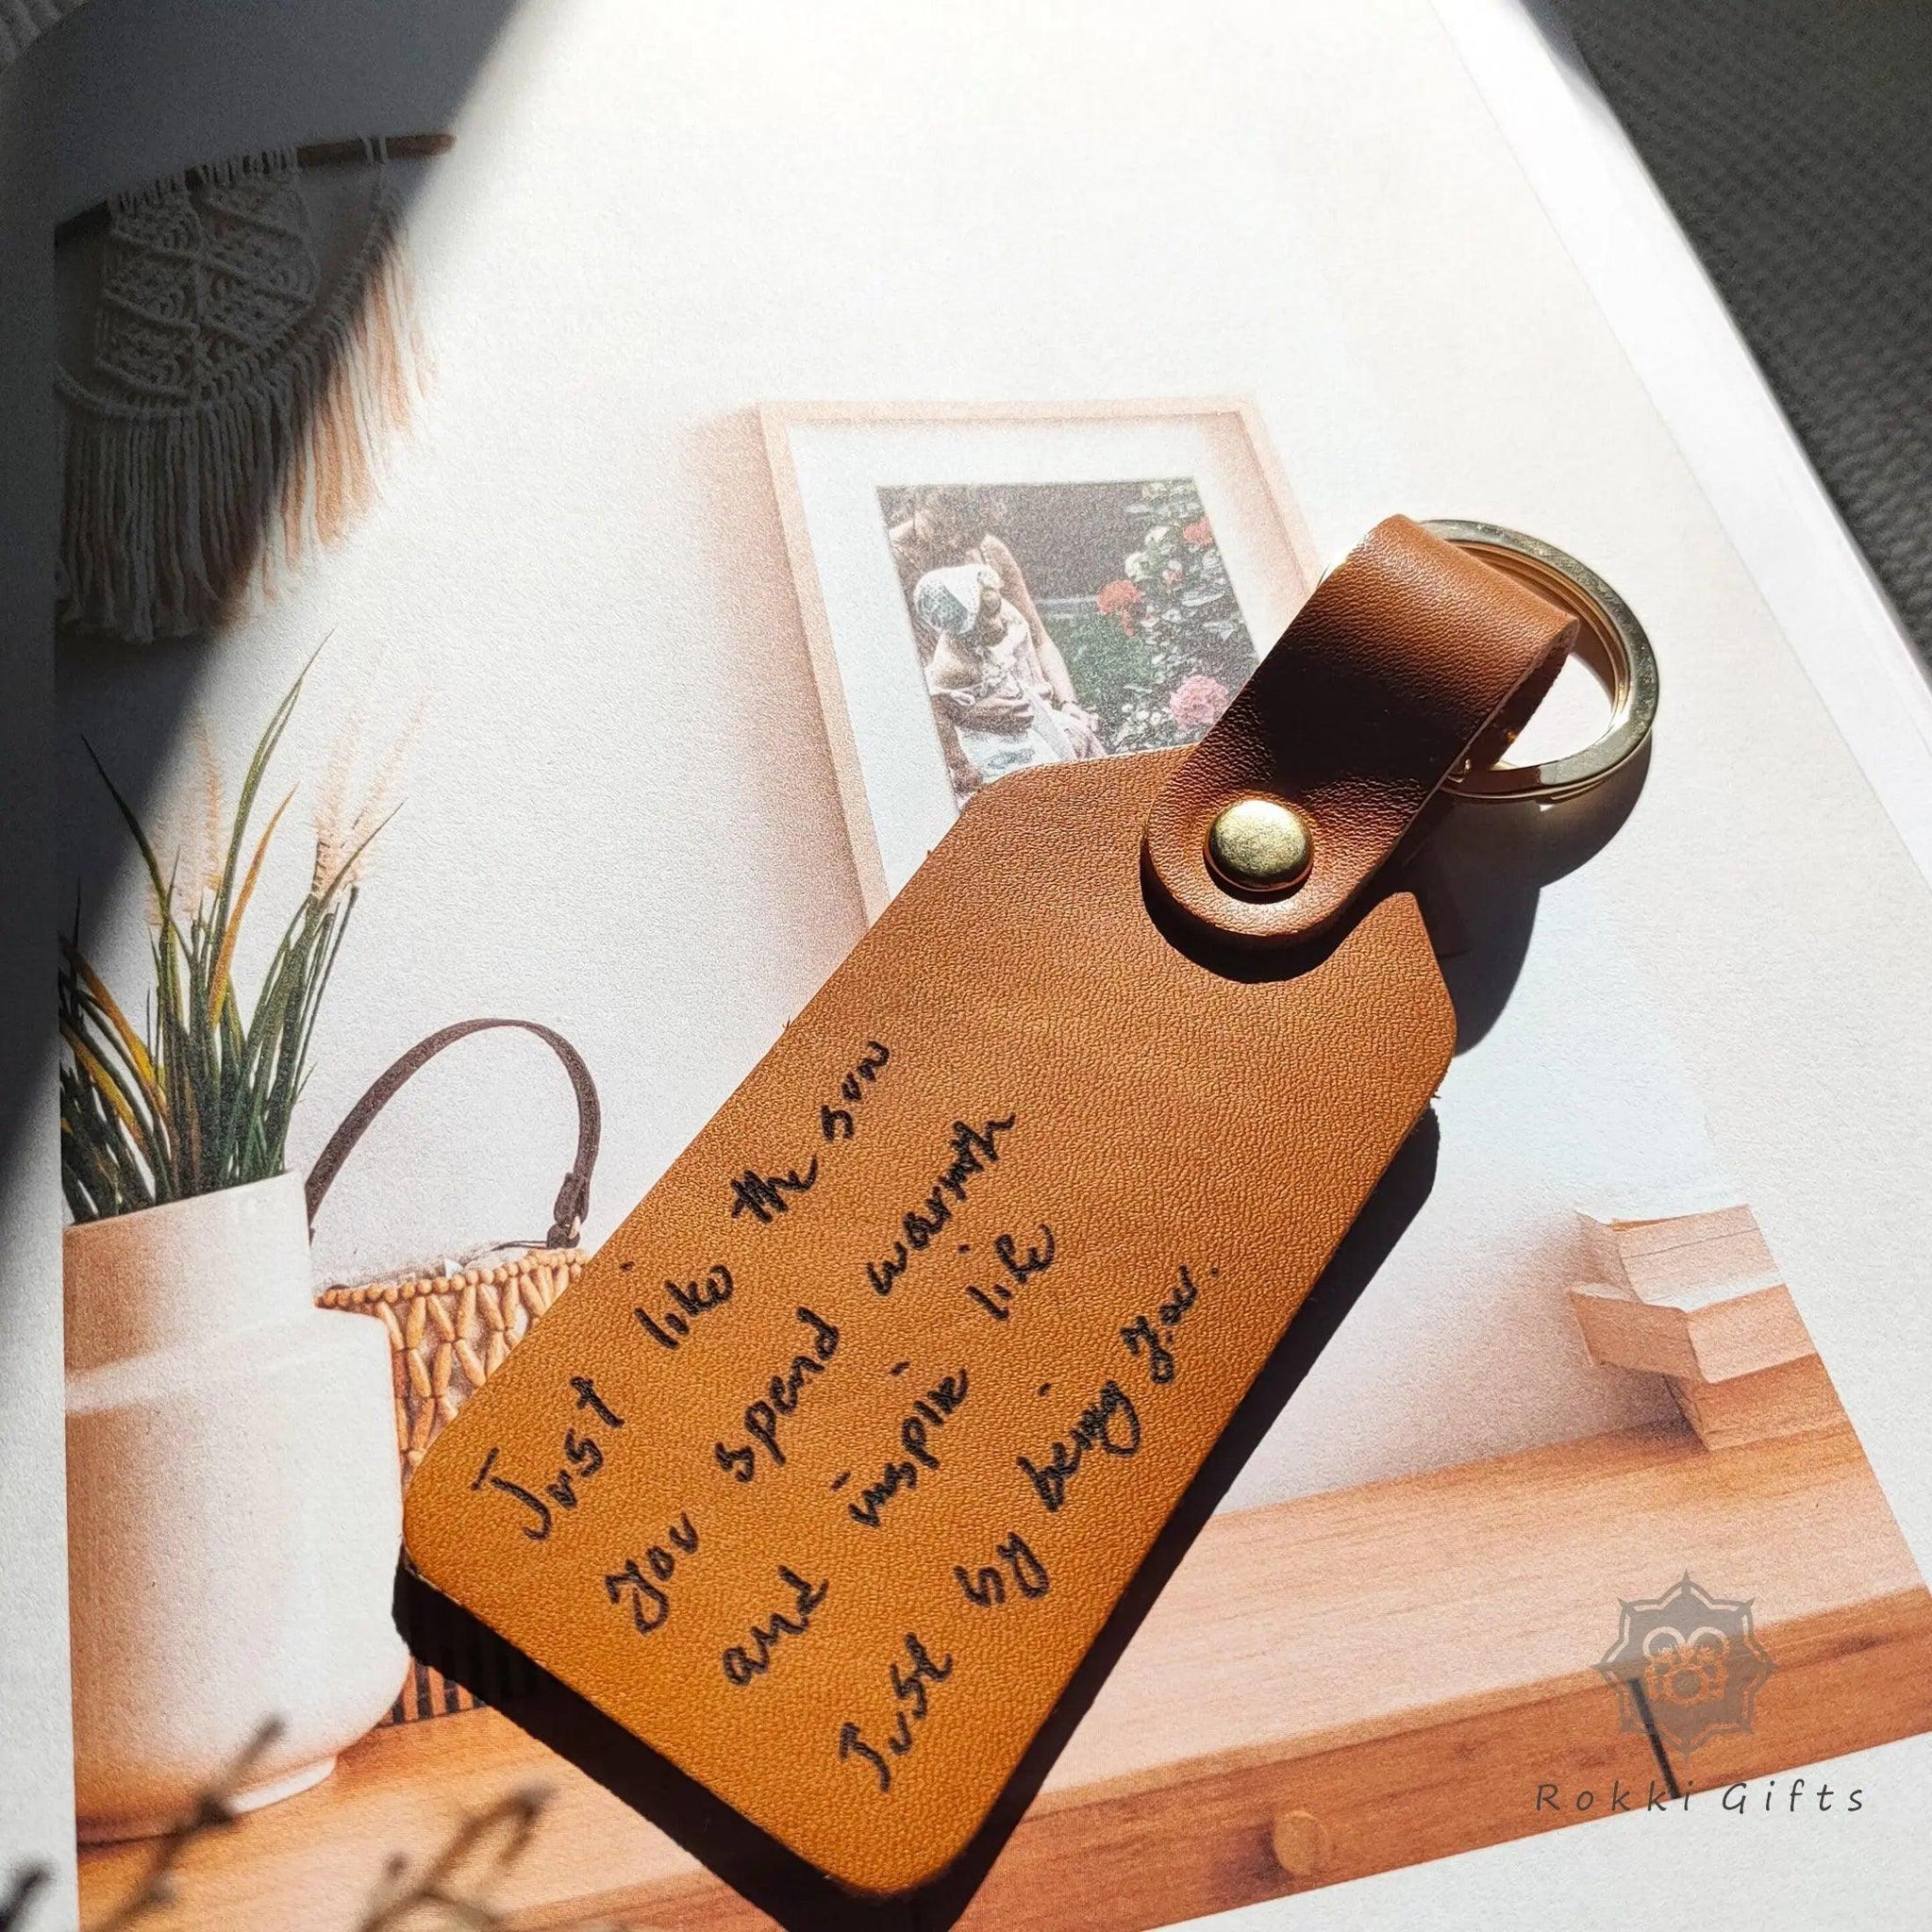 Just like the sun
you spend warmth
and inspire life
Just by being you.
Rokki Gifts